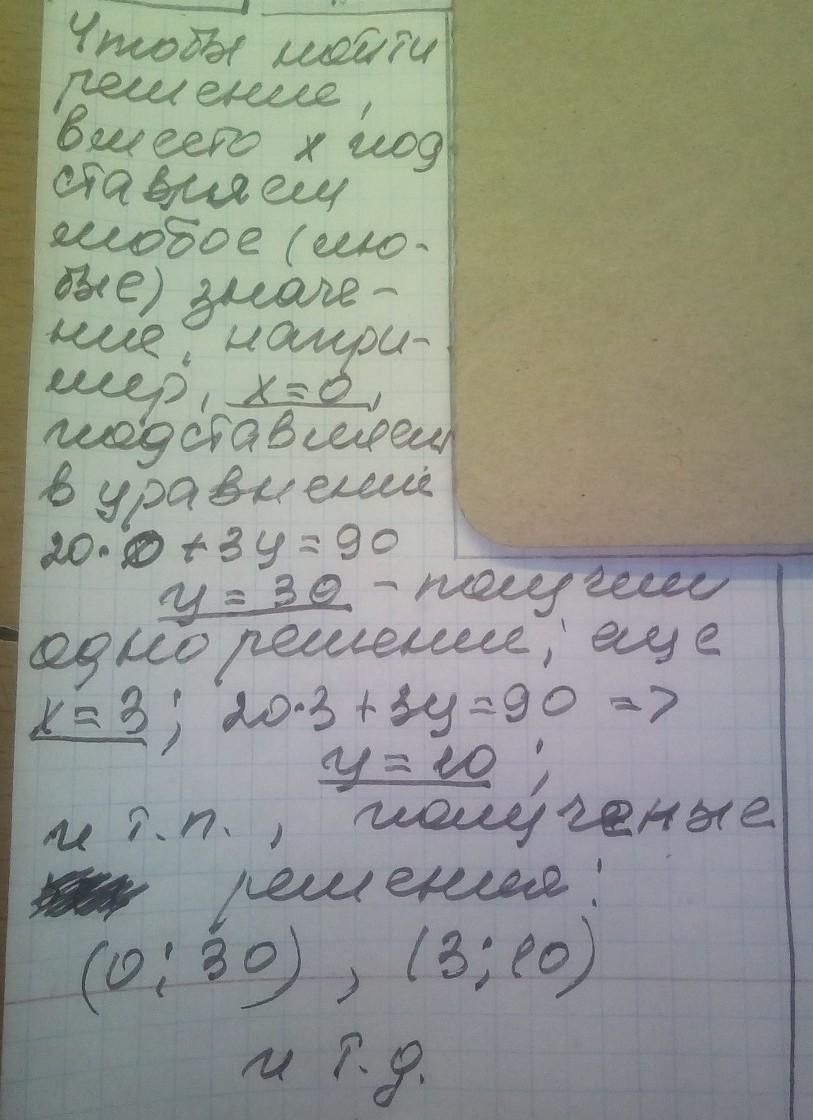 Чтобы найти
решение,
вместо х под
ставляем
любое (лю-
бые) значе-
ние, напри-
мер, х=0,
подставляем
в уравнение
20·0+3у=90
у=30 - получим
одно решение; еще
х=3; 20·3+3у=90 =>
у=10;
и т.п., полученные
решения:
(0;30), (3;10)
и т.д.